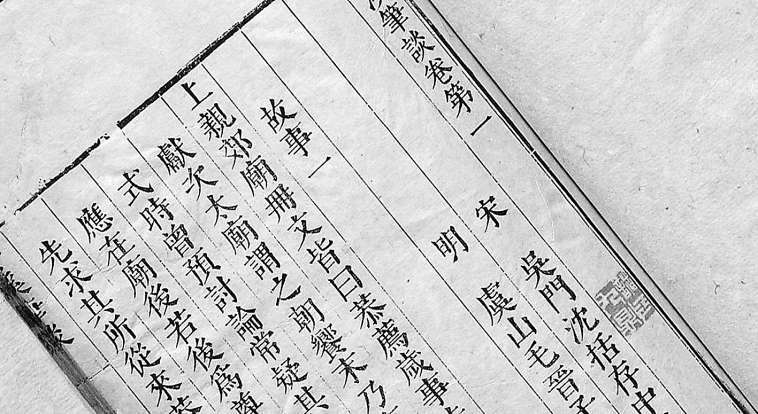 筆談卷第一
宋 吳門沈括存中
明 虞山毛晉子
故事一
上親郊廟冊文皆曰恭薦歲事
獻次太廟謂之朝饗末乃
式時曾預討論常疑其
應在廟後若後爲尊
先求其所從來蓋
筆談